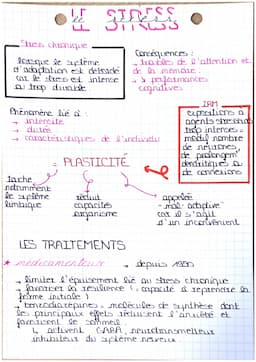 LE STRESS
Stress chronique
lorsque le système
d'adaptation est débordé
car le stress est intense
ou trop durable
Conséquences :
→ troubles de l'attention et
de la mémoire
→ performances
cognitives
Phénomène lié à :
- intensité
- durée
- caractéristiques de l'individu
IRM
expositions à
agents stressants
trop intenses =
modif nombre
de neurones,
de prolongem
dendritiques ou
de connexions
= PLASTICITÉ
tâche
notamment
le système
limbique
réduit
capacités
organisme
appelée
"mal-adaptive"
car il s'agit
d'un inconvénient
LES TRAITEMENTS
* médicamenteux
depuis 1950
→ limiter l'épuisement lié au stress chronique
→ favoriser la résilience (capacité à reprendre la
forme initiale)
- benzodiazépines = molécules de synthèse dont
les principaux effets réduisent l'anxiété et
favorisent le sommeil
↳ activent GABA, neurotransmetteur
inhibiteur du système nerveux